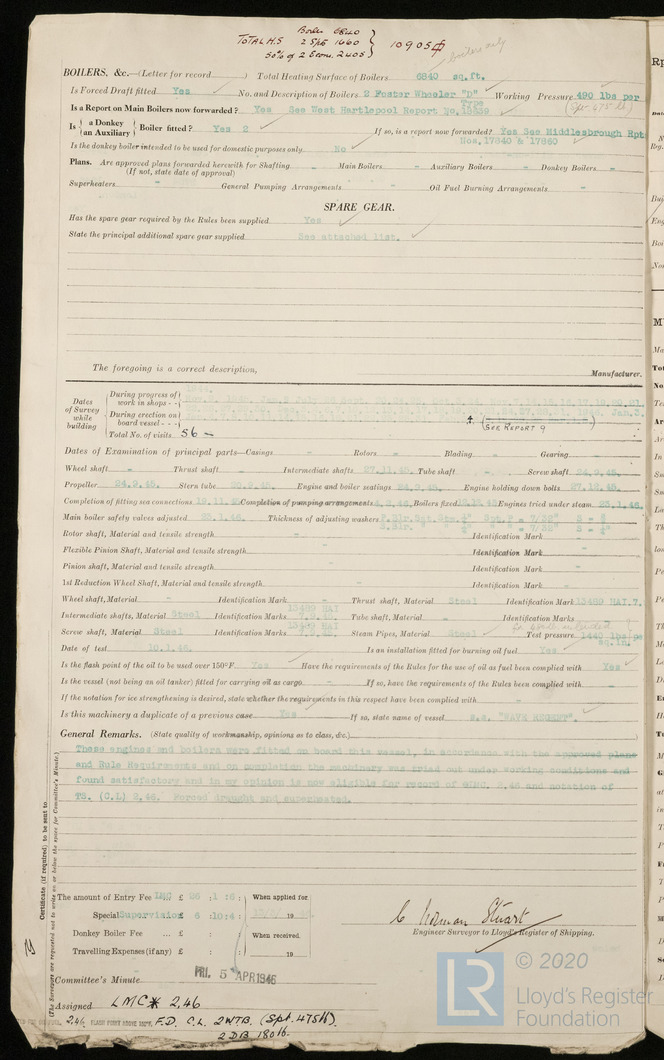 Boiler 6840
TOTAL H.S 2 Spt 1660 } 10905
50% of 2 Econ. 2405
boilers only
BOILERS, &c.—(Letter for record ) Total Heating Surface of Boilers 6840 sq.ft.
Is Forced Draft fitted Yes No. and Description of Boilers 2 Foster Wheeler "D" Type Working Pressure 490 lbs per
(Spt 475 lb)
Is a Report on Main Boilers now forwarded? Yes See West Hartlepool Report No.
Is { a Donkey / an Auxiliary } Boiler fitted? Yes 2 If so, is a report now forwarded? Yes See Middlesbrough Rpt
Nos.17840 & 17860
Is the donkey boiler intended to be used for domestic purposes only No
Plans. Are approved plans forwarded herewith for Shafting - Main Boilers - Auxiliary Boilers - Donkey Boilers -
(If not, state date of approval)
Superheaters - General Pumping Arrangements - Oil Fuel Burning Arrangements -
SPARE GEAR.
Has the spare gear required by the Rules been supplied Yes
State the principal additional spare gear supplied See attached list.
The foregoing is a correct description,
Manufacturer.
Dates of Survey while building
During progress of work in shops - -
During erection on board vessel - - -
(SEE REPORT 9)
Total No. of visits 56
Dates of Examination of principal parts—Casings - Rotors - Blading - Gearing -
Wheel shaft - Thrust shaft - Intermediate shafts 27.11.45. Tube shaft - Screw shaft 24.9.45.
Propeller 24.9.45. Stern tube 20.9.45. Engine and boiler seatings 24.9.45. Engine holding down bolts 27.12.45.
Completion of fitting sea connections 19.11. Completion of pumping arrangements Boilers fixed Engines tried under steam 23.1.46.
Main boiler safety valves adjusted 23.1.46. Thickness of adjusting washers
Rotor shaft, Material and tensile strength - Identification Mark -
Flexible Pinion Shaft, Material and tensile strength - Identification Mark -
Pinion shaft, Material and tensile strength - Identification Mark -
1st Reduction Wheel Shaft, Material and tensile strength - Identification Mark -
Wheel shaft, Material - Identification Mark - Thrust shaft, Material Steel Identification Mark 13489 HAI.7.
Intermediate shafts, Material Steel Identification Marks 13489 HAI 7.9.45. Tube shaft, Material - Identification Marks -
Screw shaft, Material Steel Identification Marks 13489 HAI 7.9.45. Steam Pipes, Material Steel Test pressure 1440 lbs per sq.in.
Date of test 10.1.46. Is an installation fitted for burning oil fuel Yes
Is the flash point of the oil to be used over 150°F. Yes Have the requirements of the Rules for the use of oil as fuel been complied with Yes
Is the vessel (not being an oil tanker) fitted for carrying oil as cargo - If so, have the requirements of the Rules been complied with -
If the notation for ice strengthening is desired, state whether the requirements in this respect have been complied with -
Is this machinery a duplicate of a previous case Yes If so, state name of vessel s.s. "WAVE REGENT".
General Remarks. (State quality of workmanship, opinions as to class, &c.)
These engines and boilers were fitted on board this vessel, in accordance with the approved plans
and Rule Requirements and on completion the machinery was tried out under working conditions and
found satisfactory and in my opinion is now eligible for record of LMC. 2.46 and notation of
TS. (C.L) 2.46. Forced draught and superheated.
Certificate (if required) to be sent to
(The Surveyors are requested not to write on or below the space for Committee's Minute.)
The amount of Entry Fee LMC £ 26 : 1 : 6 : When applied for,
Special Supervision £ 6 :10:4 : 19
Donkey Boiler Fee ... £ : : When received,
Travelling Expenses (if any) £ : : 19
C Norman Stuart
Engineer Surveyor to Lloyd's Register of Shipping.
Committee's Minute FRI. 5 APR 1946
Assigned LMC* 2.46
2.46 F.D. C.L. 2WTB. (Spt. 475 lb).
2 DB 180 lb.
LR
© 2020
Lloyd's Register
Foundation